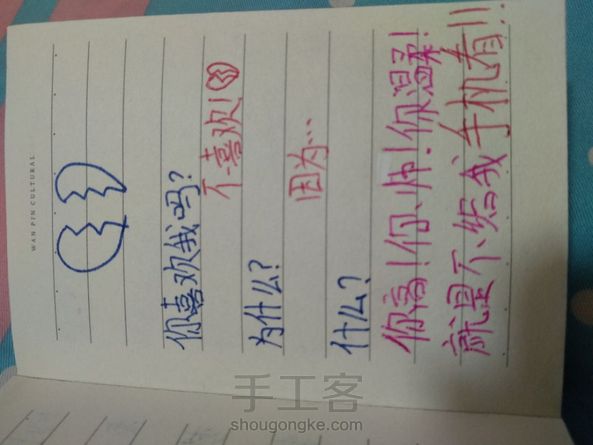 WAN PIN CULTURAL
你喜欢我吗?
不喜欢!
为什么?
因为…
什么?
你高!你帅!你温柔!
就是不给我手机看!!!
手工客
shougongke.com